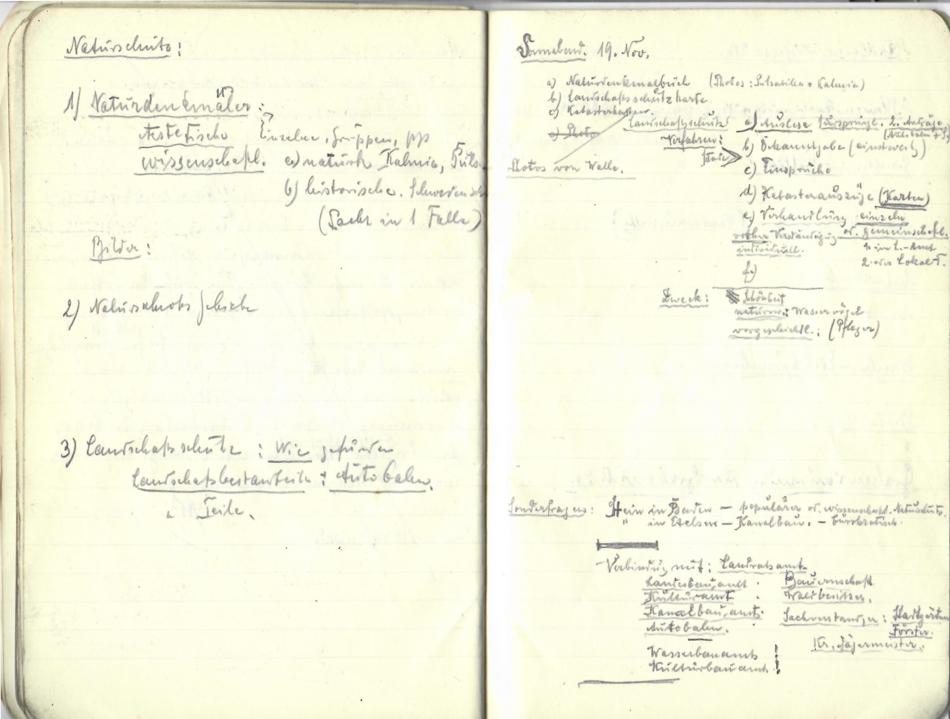 Naturschutz:
1) Naturdenkmäler:
Ästetische Einzelne, Gruppen,
wissenschaftl. a) natürl. Kalmia,
b) historische. Schweden
(Sacht in 1 Falle)
Bilder:
2) Naturschutzgebiete
3) Landschaftsschutz: Wie gefunden
Landschaftsbestandteile: Autobahn.
" Teile.
Sonnabend. 19. Nov.
a) Naturdenkmalbuch (Photos: Kalmia)
b) Landschaftsschutzkarte
c)
d) Photo
Photos von Walle.
Landschaftsschutz
Verfahren:
a) Auslese (ursprüngl. 2. Anträge,
b) Bekanntgabe (einstweil.)
c) Einsprüche
d) Katasterauszüge (Karten)
e) Verhandlung einzeln
vorher Verständigung od. gemeinschaftl.
individuell. 1. in L.-Amt
2. oder Lokalt.
f.)
Zweck: Schönheit
naturw.: Wasservögel
vorgeschichtl.: (Pfleger)
Sonderfragen: Hein in Baden – populärer od. wissenschaftl. Naturschutz.
" in Etelsen – Kanalbau. – bürokratisch.
Verbindung mit: Landratsamt
Landesbauamt. Bauernschaft
Kulturamt. Waldbesitzer.
Kanalbauamt. Sachverständige: Stadtgärtn
Autobahn. Förster.
Kr. Jägermeister.
Wasserbauamt !
Kulturbauamt.